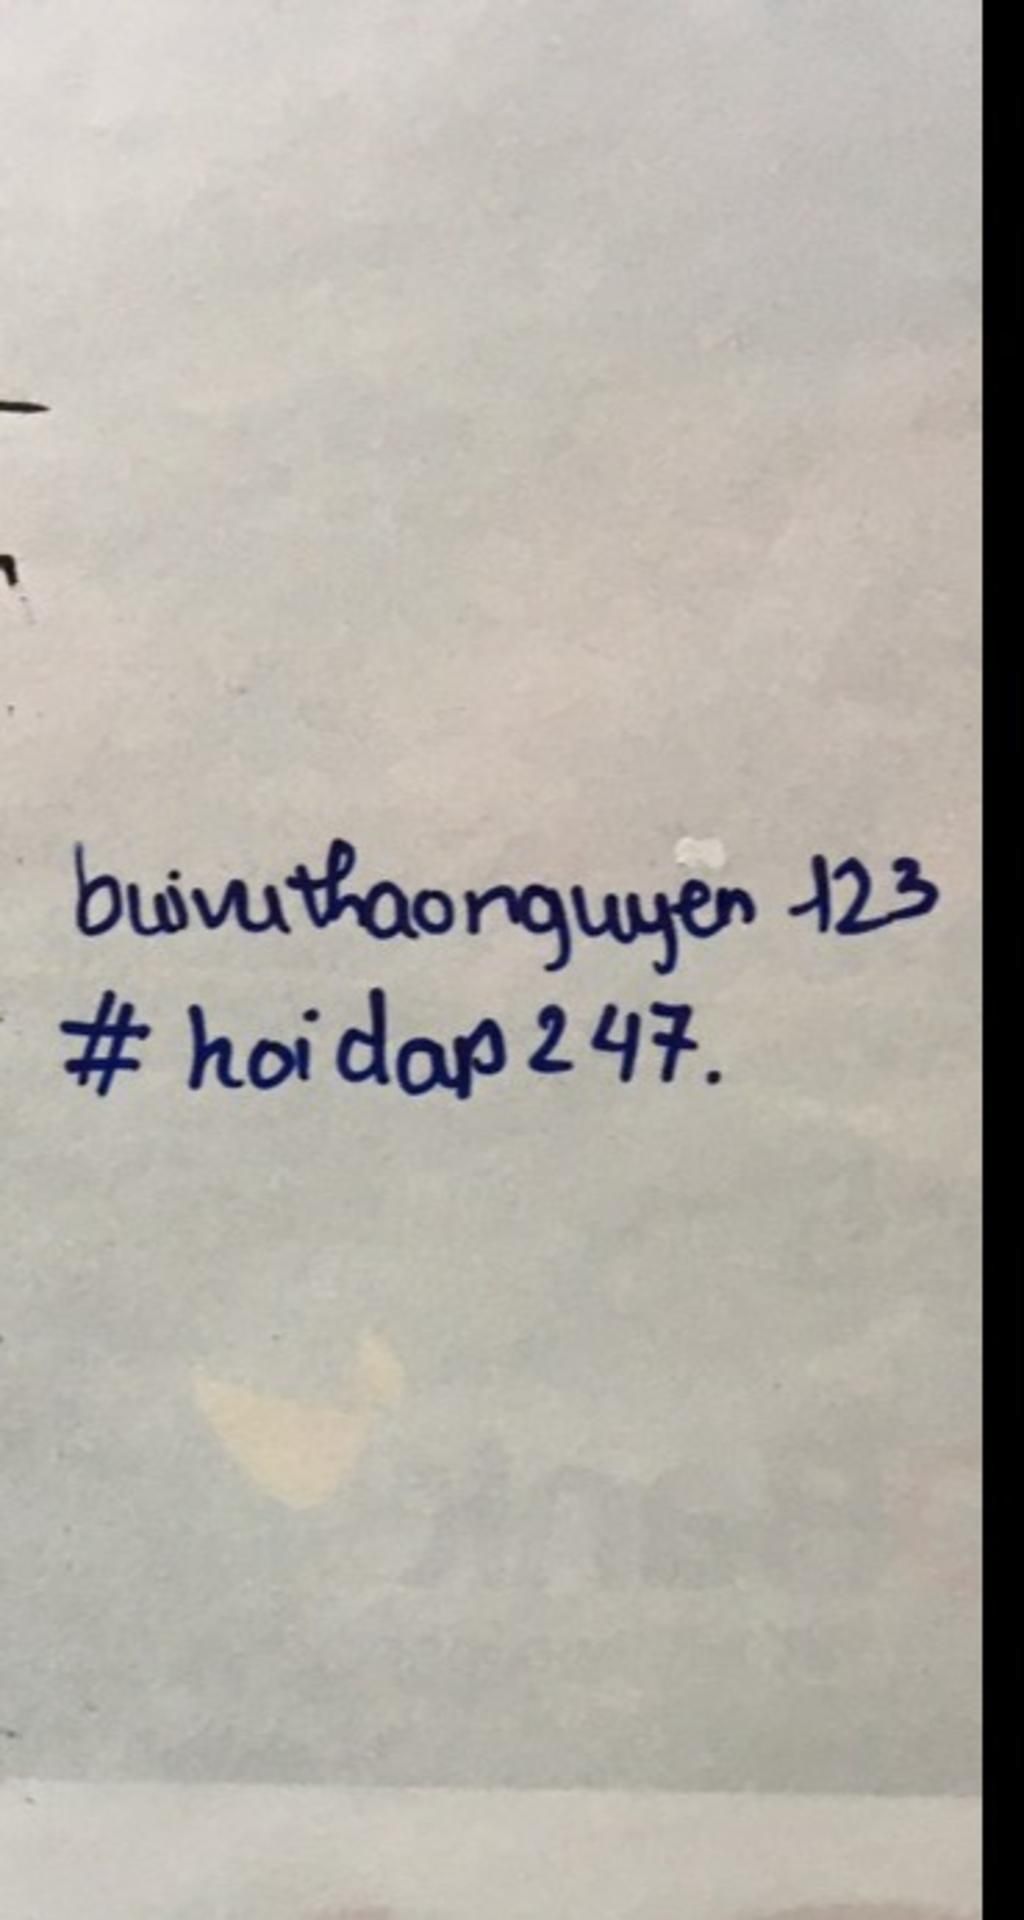 buivuthaonguyen 123
# hoidap247.